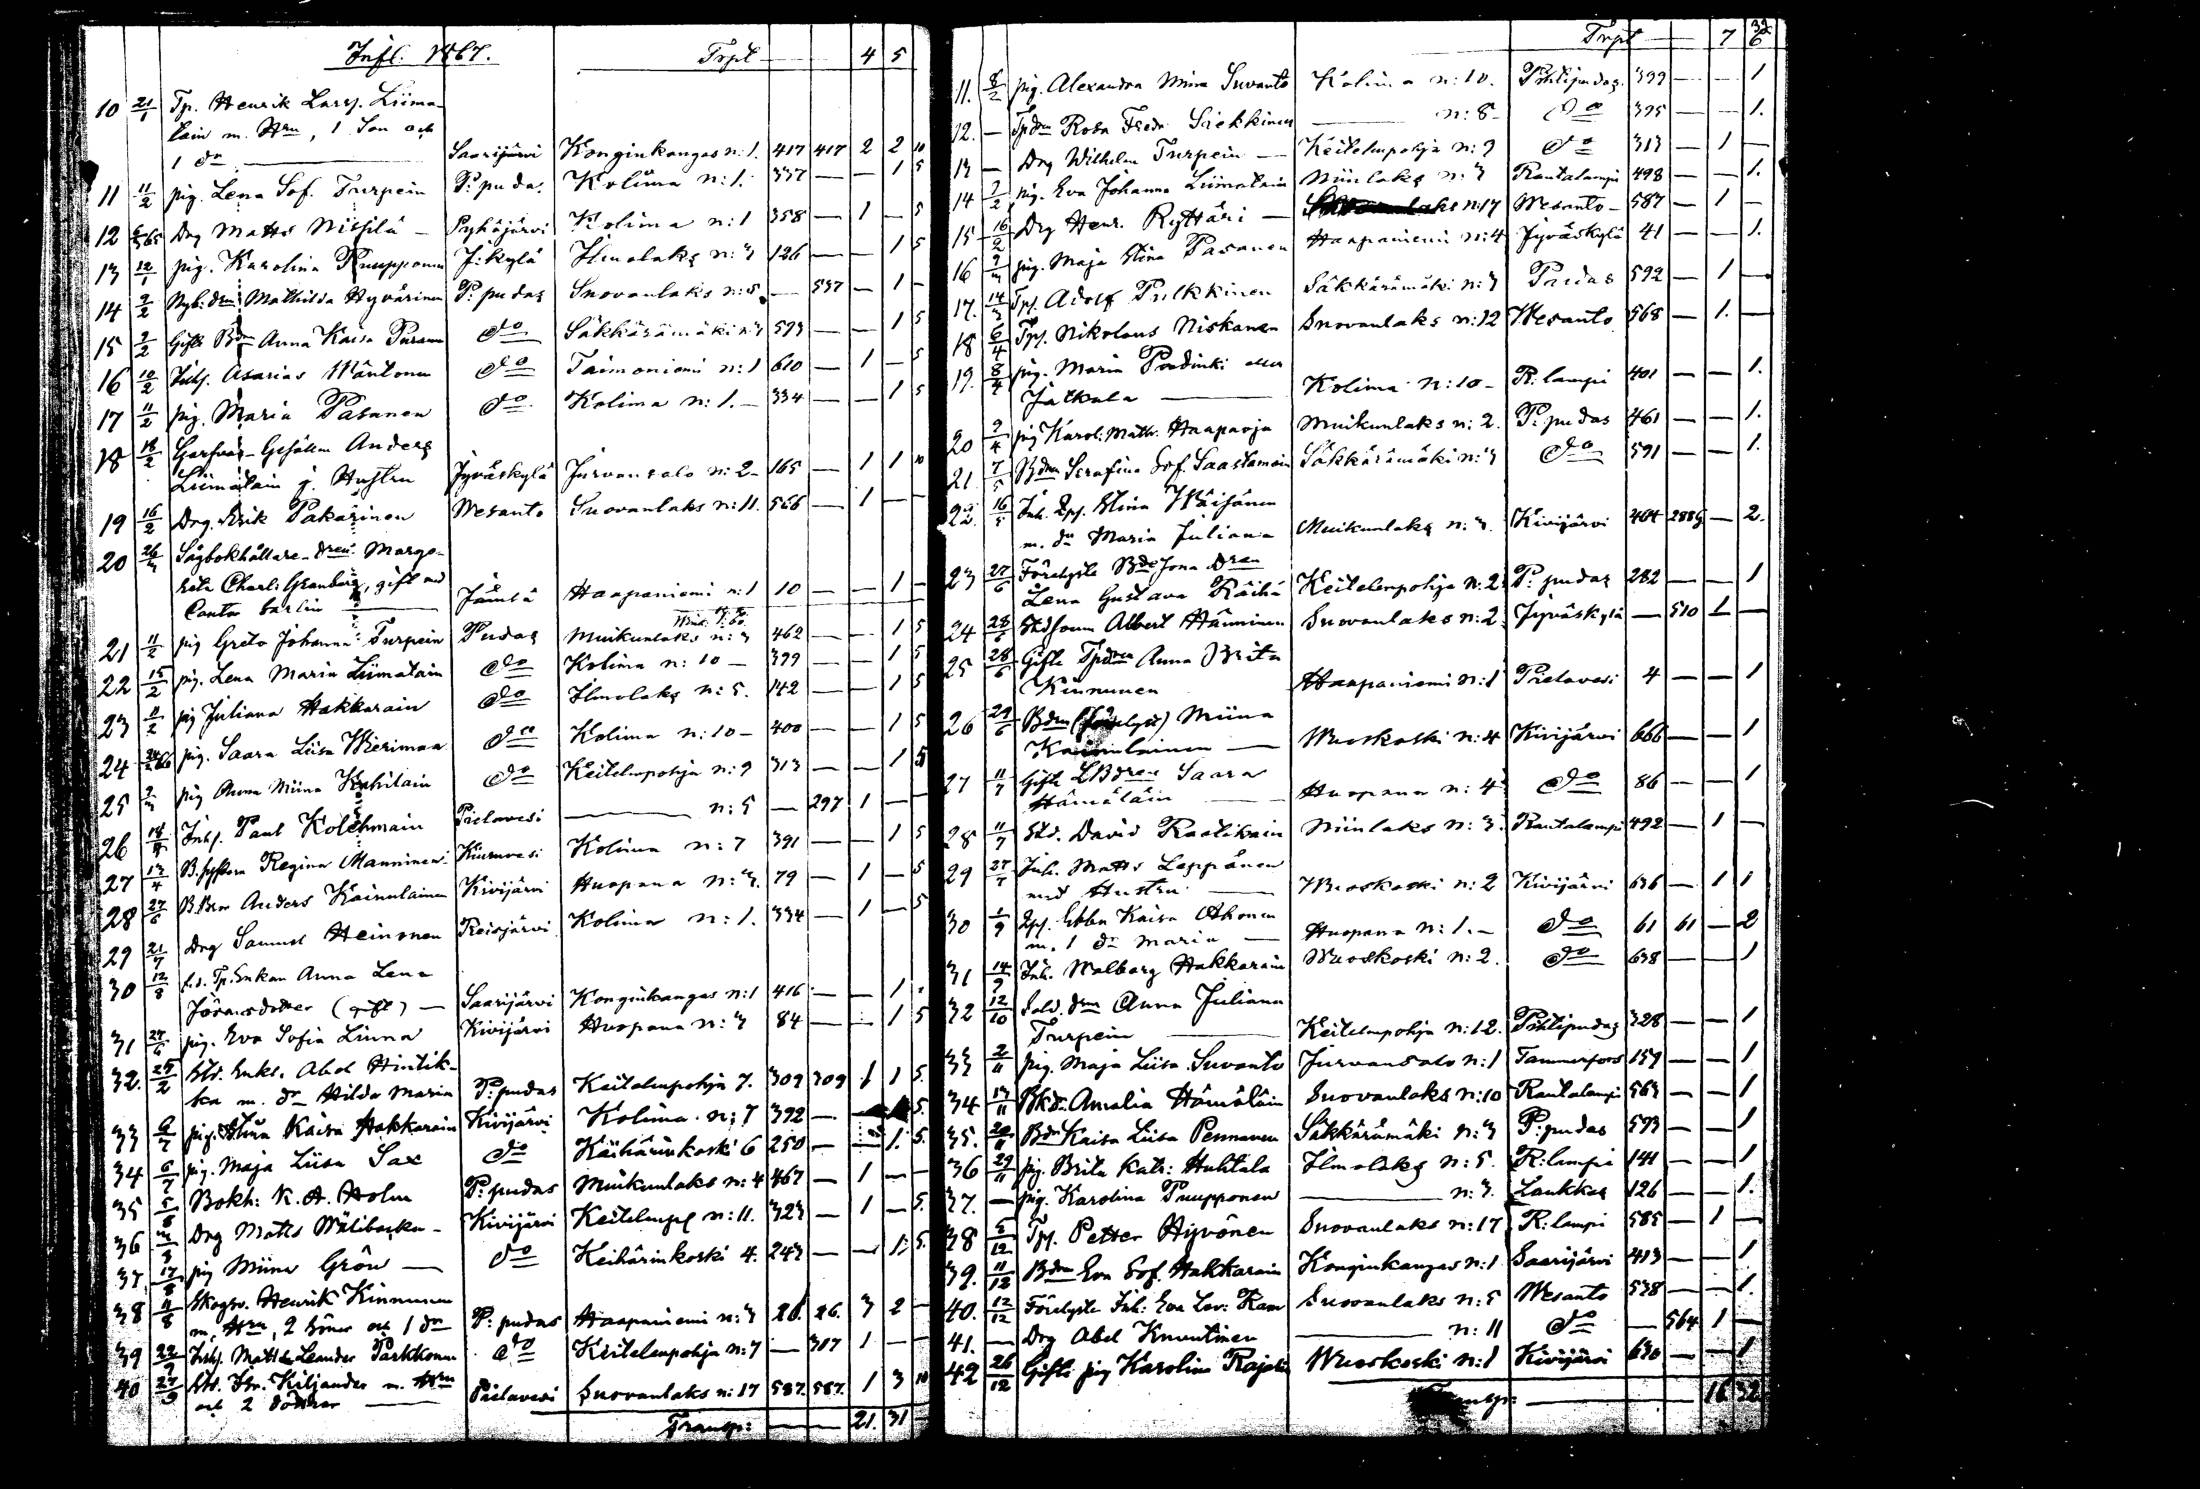 Infl. 1867. Trpt — 4 5
10 21/1 Tp. Henrik Larsf. Liima-
tain m. Hru, 1 Son och
1 dr — Saarijärvi Konginkangas n: 1. 417 417 2 2 10
11 11/2 pig. Lena Sof. Turpein P: pudas Kolima n: 1. 337 — — 1 5
12 Drg Matts Niskilä — Pyhäjärvi Kolima n: 1 358 — 1 — 5
13 12/1 pig. Karolina Puupponen J: kylä Ilmolaks n: 3 126 — — 1 5
14 2/2 Nyb: drn Mathilda Hyvärinen P: pudas Suovanlaks n: 5. — 537 — 1 —
15 2/2 Gifta Bdn Anna Kaisa Puranen do Säkkärämäki n: 3 593 — — 1 5
16 10/2 Inhs. Asarias Mäntonen do Taimoniemi n: 1 610 — 1 — 5
17 11/2 pig. Maria Pasanen do Kolima n: 1. — 334 — — 1 5
18 18/2 Garfvar-Gesällen Anders
Liimatain j. Hustru Jyväskylä Jurvansalo n: 2 — 165 — 1 1 10
19 16/2 Drg. Erik Pakarinen Wesanto Suovanlaks n: 11. 566 — 1 — —
20 26/3 Sågbokhållare-dren Marga-
reta Charl: Granberg, gift med
Cantor Carlin — Jämsä Haapaniemi n: 1 10 — — 1 —
21 11/2 pig Greta Johanna Turpein Pudas Muikunlaks n: 3 462 — — 1 5
22 15/2 pig. Lena Maria Liimatain do Kolima n: 10 — 399 — — 1 5
23 11/2 pig Juliana Hakkarain do Ilmolaks n: 5. 142 — — 1 5
24 pig. Saara Liisa Wierimaa do Kolima n: 10 — 400 — — 1 5
25 2/3 pig Anna Miina Kahilain do Keitelenpohja n: 9 313 — — 1 5
26 Inhs. Paul Kolehmain Pielavesi — n: 5 — 297 1 — —
27 13/4 B. Regina Manninen Kiuruvesi Kolima n: 7 391 — — 1 5
28 27/6 B. Bror Anders Kainulainen Kivijärvi Huopana n: 3. 79 — 1 — 5
29 21/7 Drg Samuel Heinonen Reisjärvi Kolima n: 1. 334 — 1 — 5
30 12/8 f.d. Tp. Enkan Anna Lena
Jöransdotter (gift) — Saarijärvi Konginkangas n: 1 416 — — 1
31 27/6 pig. Eva Sofia Linna Kivijärvi Huopana n: 3 84 — — 1 5
32. 25/2 Enks. Abel Hintik-
ka m. dr Hilda Maria P: pudas Keitelenpohja 7. 309 309 1 1 5.
33 6/7 pig. Stina Kaisa Hakkarain Kivijärvi Kolima n: 7 392 — 5.
34 6/7 pig. Maja Liisa Sax do Keihärinkoski 6 250 — — 1. 5.
35 5/8 Bokh: K. A. Holm P: pudas Muikunlaks n: 4 467 — 1 — —
36 Drg Matts Wälibacka — Kivijärvi Keitelenp n: 11. 323 — 1 — 5.
37. 17/8 pig Miina Grön — do Keihärinkoski 4. 243 — — 1. 5.
38 11/8 Skogsv. Henrik Kinnunen
m. Hru, 2 Söner och 1 dr P: pudas Haapaniemi n: 3 26. 26. 3 2 —
39 22/9 Inhs. Matts Leander Parkkonen do Keitelenpohja n: 7 — 307 1 — —
40 27/9 Kiljander m. Hru
och 2 döttrar — Pielavesi Suovanlaks n: 17 587. 587. 1 3 10
Transp: — 21. 31
Trpt — 7 6
11. 8/2 pig. Alexandra Mina Suvanto Kolima n: 10. Pihtipudas. 399 — — 1
12. — Tpdrn Rosa Fredr. Siekkinen — n: 8 — do 395 — — 1.
13 — Drg Wilhelm Turpein — Keitelenpohja n: 9 do 313 — 1 —
14 7/2 pig. Eva Johanna Liimatain Niinlaks n: 3 Rautalampi 498 — — 1.
15 16/2 Drg Henr. Ryttäri — n: 17 Wesanto — 587 — 1 —
16 9/3 pig. Maja Stina Pasanen Haapaniemi n: 4 Jyväskylä 41 — — 1.
17. 14/3 Tps. Adolf Pulkkinen Säkkärämäki n: 3 Pudas 592 — 1 —
18 6/4 Tps. Nikolaus Niskanen Suovanlaks n: 12 Wesanto 568 — 1. —
19. 8/4 pig. Maria Pundinki eller
Jatkola — Kolima n: 10 — R: lampi 401 — — 1.
20 9/4 pig Karol: Math. Haapaoja Muikunlaks n: 2. P: pudas 461 — — 1.
21. 7/5 Bdrn Serafina Sof. Saastamoin Säkkärämäki n: 3 do 591 — — 1.
22. 16/5 Inh. Stina Häihänen
m. dr Maria Juliana Muikunlaks n: 3. Kivijärvi 464 — 2.
23 27/6 Förelyste Bde Jona dren
Lena Gustava Räihä Keitelenpohja n: 2. P: pudas 282 — — 1
24 28/6 Albert Hänninen Suovanlaks n: 2. Jyväskylä — 510 1 —
25 28/6 Gifte Tpdren Anna Brita
Kinnunen Haapaniemi n: 1 Pielavesi 4 — — 1
26 29/6 Bdrn (förelyst) Miina
Kainulainen — Wuoskoski n: 4 Kivijärvi 666 — — 1
27 11/7 Gifte LBdren Saara
Hämäläin — Huopana n: 4 do 86 — — 1
28 11/7 David Rautikain Niinlaks n: 3. Rautalampi 492 — 1 —
29 27/7 Inh. Matts Leppänen
med Hustru — Wuoskoski n: 2 Kivijärvi 636 — 1 1
30 1/9 Ebba Kaisa Ahonen
m. 1 dr Maria — Huopana n: 1. — do 61 61 — 2
31 14/9 Inh. Walborg Hakkarain Wuoskoski n: 2. do 638 — — 1
32 12/10 Sold. drn Anna Juliana
Turpein — Keitelenpohja n: 12. Pihtipudas 328 — — 1
33 2/11 pig. Maja Liisa Suvanto Jurvansalo n: 1 Tammerfors 159 — — 1
34 13/11 Bkdr Amalia Hämäläin Suovanlaks n: 10 Rautalampi 563 — — 1
35. 20/11 Bdr Kaisa Liisa Pennanen Säkkärämäki n: 3 P: pudas 593 — — 1
36 29/11 pig. Brita Katr: Huhtala Ilmolaks n: 5. R: lampi 141 — — 1
37. — pig. Karolina Puupponen — n: 3. Laukkas 126 — — 1.
38 2/12 Tps. Petter Hyvönen Suovanlaks n: 17 R: lampi 585 — 1 —
39. 11/12 Bdrn Eva Sof. Hakkarain Konginkangas n: 1 Saarijärvi 413 — — 1
40. 12/12 Förelyste Inh: Eva Lov: Ram Suovanlaks n: 5 Wesanto 538 — — 1.
41. — Drg Abel Knuutinen — n: 11 do — 564 1 —
42 26/12 Gifta pig Karolina Wuoskoski n: 1 Kivijärvi 630 — — 1
Transp: — 16 32